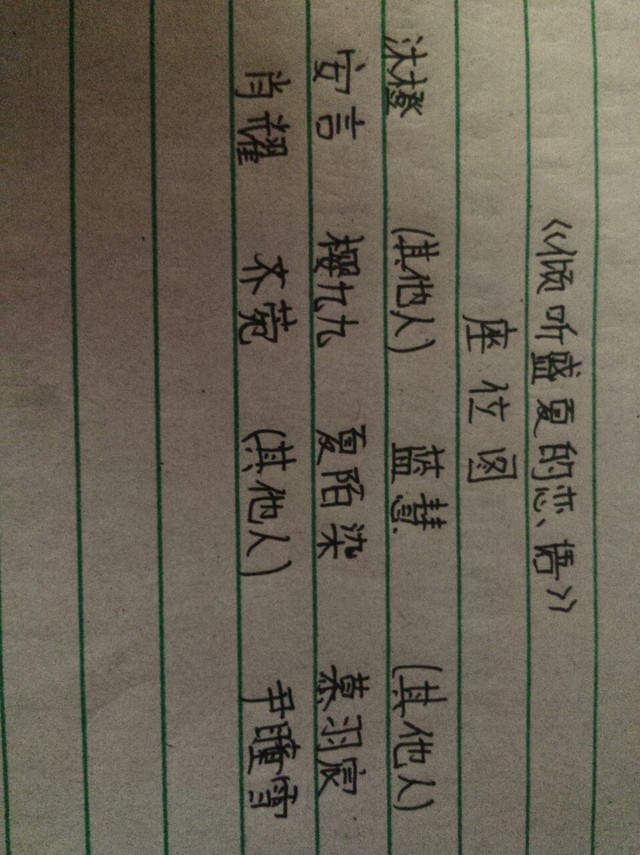 《倾听盛夏的恋语》
座位图
沐橙 (其他人) 蓝慧 (其他人)
安言 樱九九 夏陌染 慕羽宸
肖耀 齐菀 (其他人) 尹瞳雪